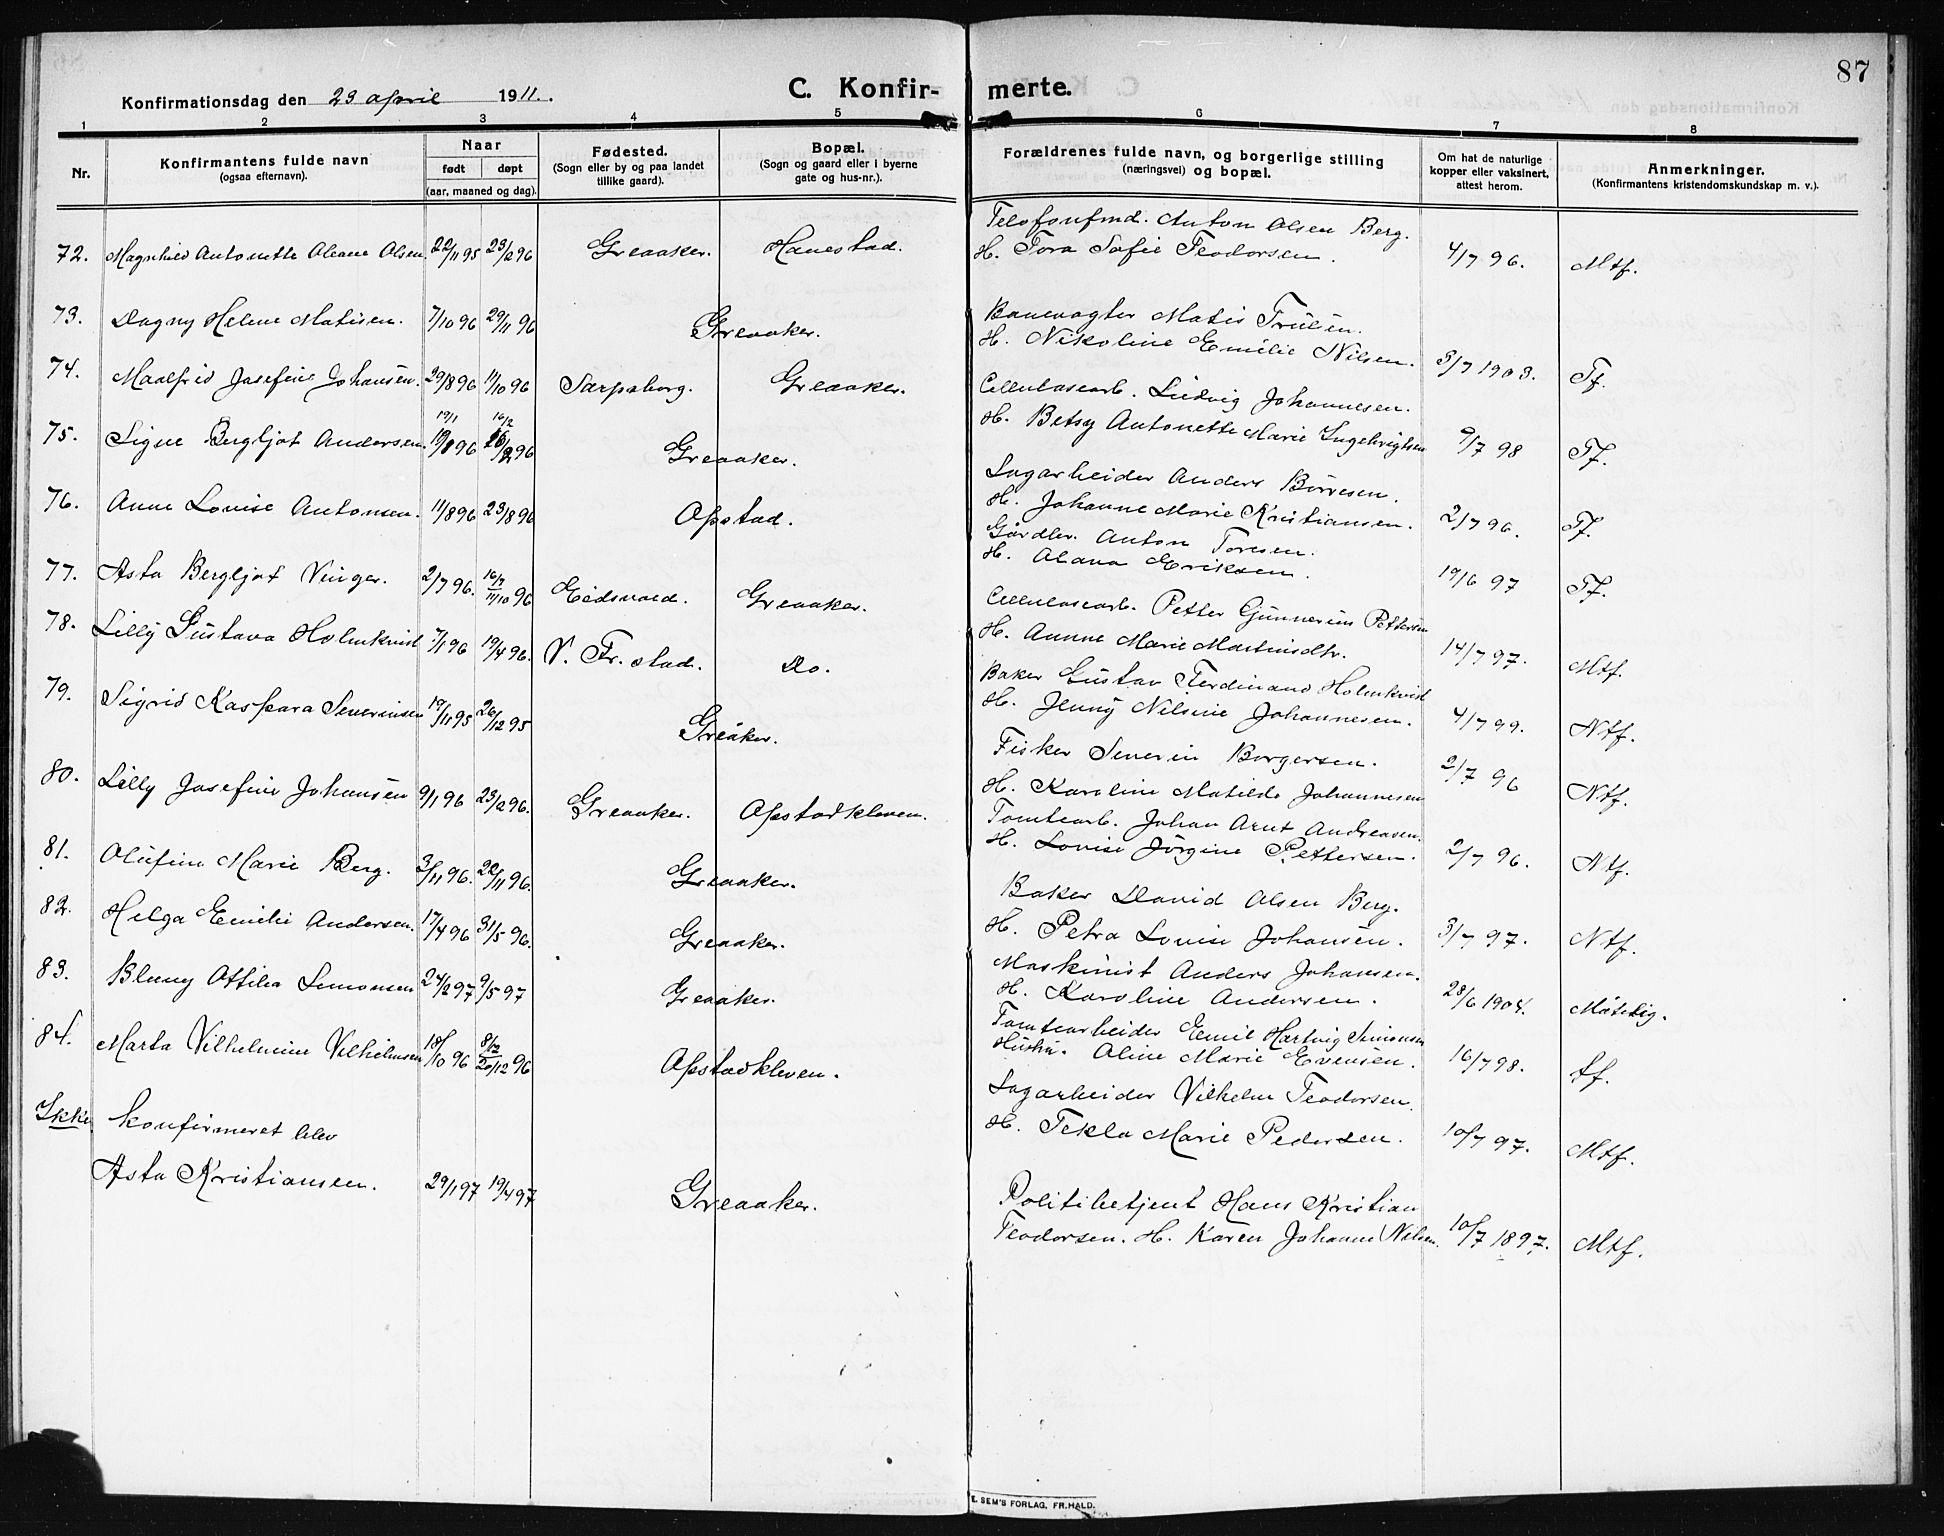 87
Konfirmationsdag den 23 april 1911.
C. Konfirmerte.
1 2 3 4 5 6 7 8
Nr.
Konfirmantens fulde navn
(ogsaa efternavn).
Naar
født døpt
(aar, maaned og dag).
Fødested.
(Sogn eller by og paa landet
tillike gaard).
Bopæl.
(Sogn og gaard eller i byerne
gate og hus-nr.).
Forældrenes fulde navn, og borgerlige stilling
(næringsvei) og bopæl.
Om hat de naturlige
kopper eller vaksinert,
attest herom.
Anmerkninger.
(Konfirmantens kristendomskundskap m. v.).
72. Magnhild Antonette Oleane Olsen 22/11 95 23/2 96 Greaaker. Hanestad.
Telefonfmd. Anton Olsen Berg.
H. Tora Sofie Teodorsen. 4/7 96. Mtf.
73. Dagny Helene Matisen. 7/10 96 29/11 96 Greaaker.
Banevogter Matis Trulsen.
H. Nikoline Emilie Nilsen. 3/7 1903. Tf.
74. Maalfrid Josefine Johansen. 29/8 96 11/10 96 Sarpsborg. Greaaker.
Cellulosearb. Ludvig Johannesen.
H. Betsy Antonette Marie Ingebrigtsen 9/7 98 Tf.
19/1 16/2
75. Signe Bergljot Andersen 96 96 Greaaker.
Sagarbeider Anders Börresen.
H. Johanne Marie Kristiansen. 2/7 96. Tf.
76. Anne Lovise Antonsen. 11/8 96 23/8 96 Opstad.
Gårdbr. Anton Toresen.
H. Olava Eriksen. 19/6 97 Tf.
77. Asta Bergljot Vinger. 2/7 96. 16/7 11/10 96 Eidsvold. Greaaker.
Cellulosearb. Petter Gunnerius Pettersen
H. Annne Marie Martinsdtr. 14/7 97. Mtf.
78. Lilly Gustava Holmkvist 7/1 96 19/4 96. V. Fr. stad. Do.
Baker Gustav Ferdinand Holmkvist
H. Jenny Nilsine Johannesen. 4/7 99. Ntf.
79. Sigrid Kaspara Severinsen 19/11 95 26/12 95 Greåker.
Fisker Severin Borgersen. 2/7 96
H. Karoline Matilde Johannesen Ntf.
80. Lilly Josefine Johansen 9/1 96 23/2 96. Greaaker. Opstadkleven.
Tomtearb. Johan Arnt Andreasen.
H. Lovise Jörgine Pettersen. 2/7 96. Ntf.
81. Olufine Marie Berg. 3/11 96. 22/11 96. Greaaker.
Baker David Olsen Berg.
H. Petra Lovise Johansen. 3/7 97. Ntf.
82. Helga Emilie Andersen. 17/4 96 31/5 96. Greaaker.
Maskinist Anders Johansen.
H. Karoline Andersen. 28/6 1904. Måtelig.
83. Bluny Ottilia Simonsen 24/2 97 9/5 97 Greaaker.
Tomtearbeider Emil Hartvig Simonsen
Hustru. Aline Marie Evensen. 16/7 98. tf.
84. Marta Vilhelmine Vilhelmsen 18/10 96 8/12 20/12 96 Opstadkleven.
Sagarbeider Vilhelm Teodorsen.
H. Tekla Marie Pedersen. 10/7 97. Mtf.
Ikke konfirmeret blev
Asta Kristiansen. 29/1 97 19/4 97 Greaaker.
Politibetjent Hans Kristian
Teodorsen. H. Karen Johanne Nilsen. 10/7 1897. Mtf.
E. SEM'S FORLAG, FR.HALD.